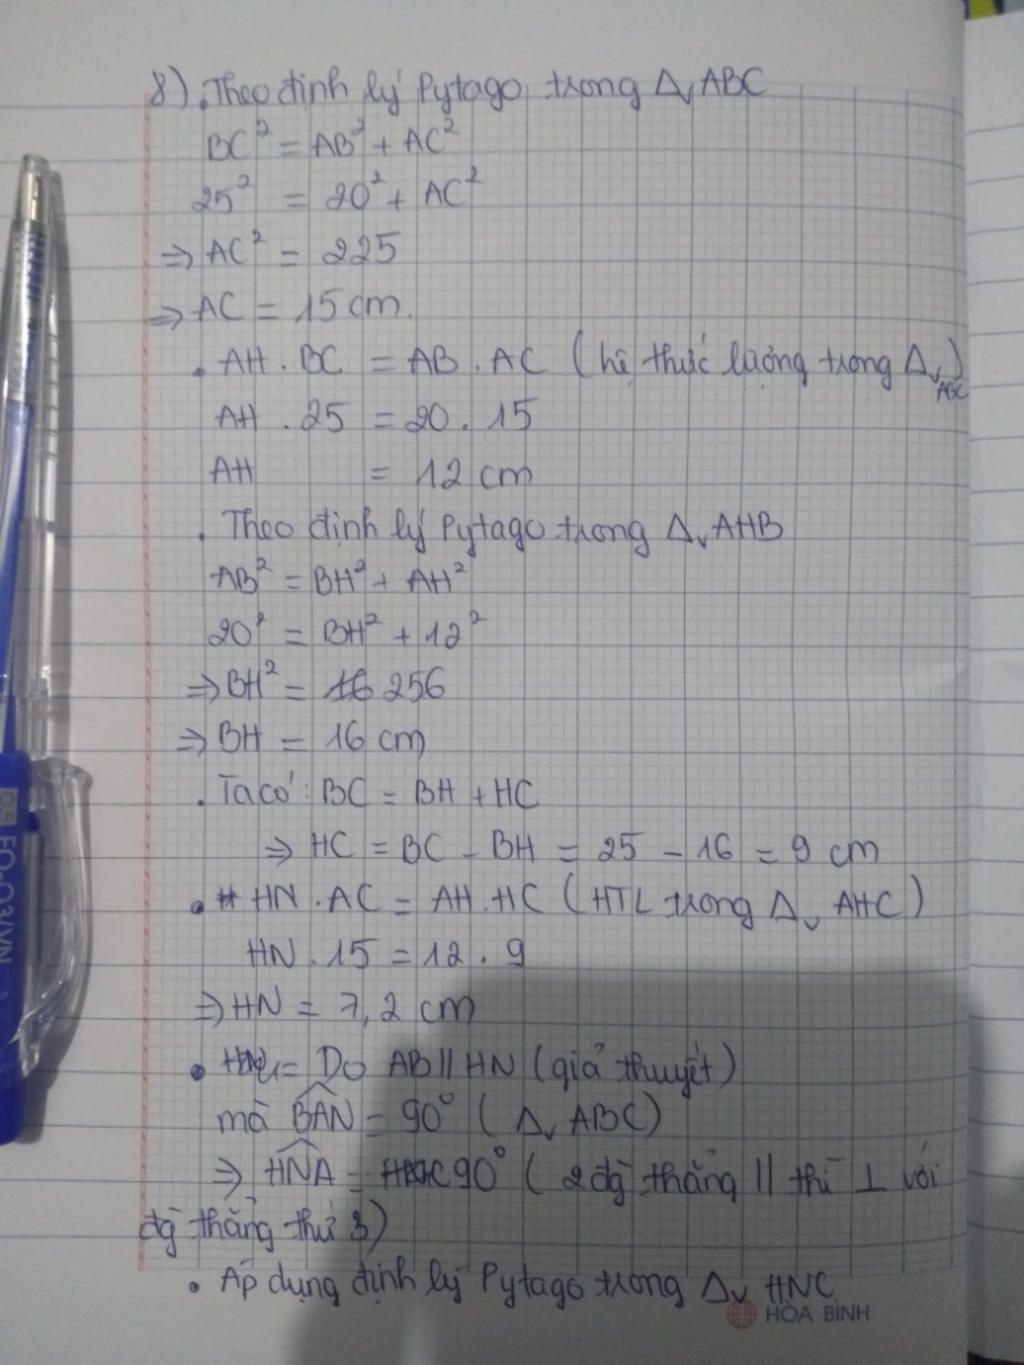 8). Theo định lý Pytago trong Δv ABC
BC² = AB² + AC²
25² = 20² + AC²
⇒ AC² = 225
⇒ AC = 15 cm.
. AH . BC = AB . AC (hệ thức lượng trong Δv ABC)
AH . 25 = 20 . 15
AH = 12 cm
. Theo định lý Pytago trong Δv AHB
AB² = BH² + AH²
20² = BH² + 12²
⇒ BH² = 256
⇒ BH = 16 cm
. Ta có : BC = BH + HC
⇒ HC = BC - BH = 25 - 16 = 9 cm
. HN . AC = AH . HC (HTL trong Δv AHC)
HN . 15 = 12 . 9
⇒ HN = 7,2 cm
. Do AB // HN (giả thuyết)
mà BAN = 90° (Δv ABC)
⇒ HNA = 90° (2 đg thẳng // thì ⊥ với
đg thẳng thứ 3)
. Áp dụng định lý Pytago trong Δv HNC
HÒA BÌNH